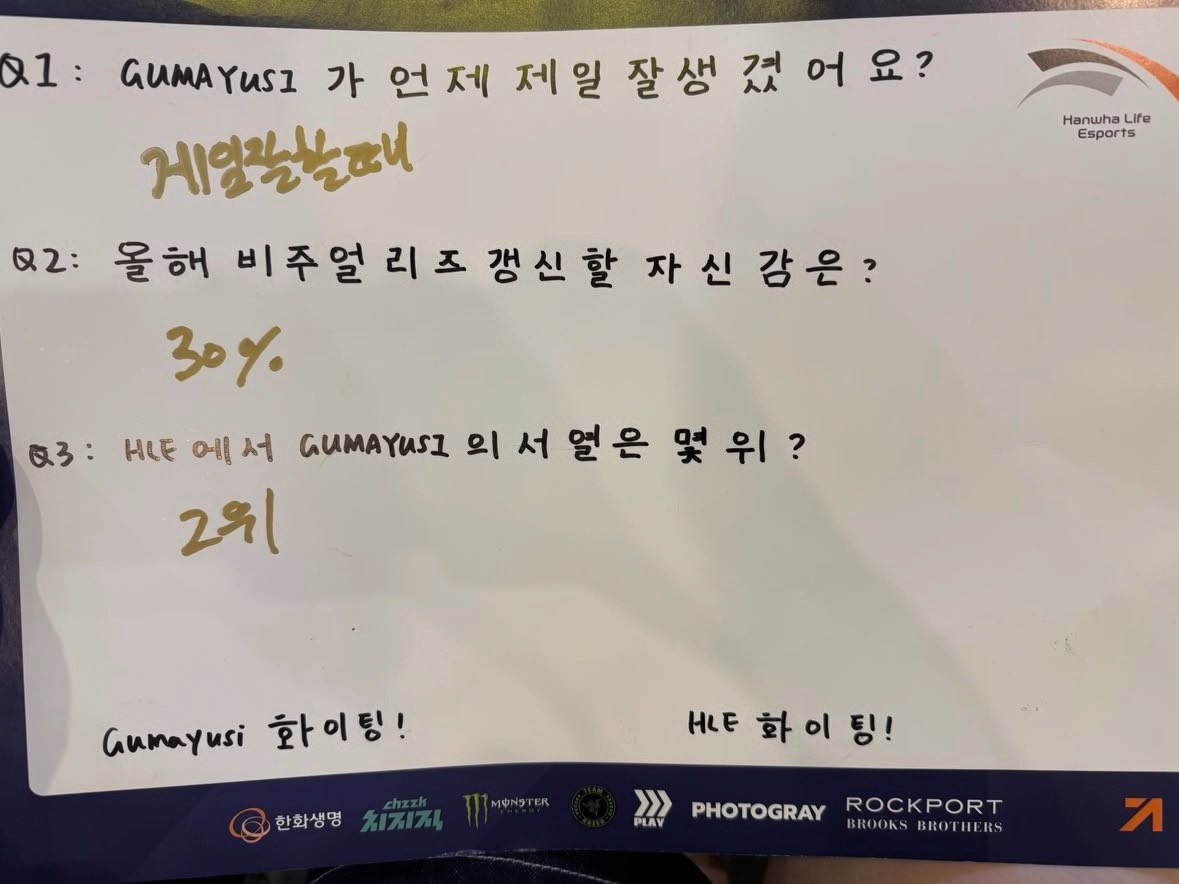 Hanwha Life
Esports
Q1: GUMAYUSI 가 언제 제일 잘생겼어요?
게임잘할때
Q2: 올해 비주얼 리즈 갱신할 자신감은?
30%
Q3: HLE에서 GUMAYUSI의 서열은 몇 위?
2위
Gumayusi 화이팅!
HLE 화이팅!
한화생명
chzzk
치지직
MONSTER
ENERGY
TEAM
RAZER
PLAY
PHOTOGRAY
ROCKPORT
BROOKS BROTHERS